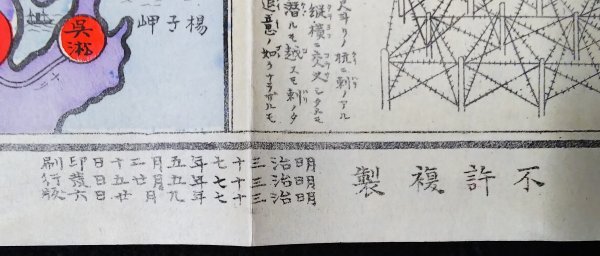 呉淞
楊子岬
尺斗リノ杭ニ刺ノアル
縦横ニ交叉シタルモ
潜ルモ越スモ刺ノタ
意ノ如クナラザルモ
不許複製
明治三十七年五月二十日印刷
明治三十七年五月廿五日發行
明治三十七年九月廿日六版